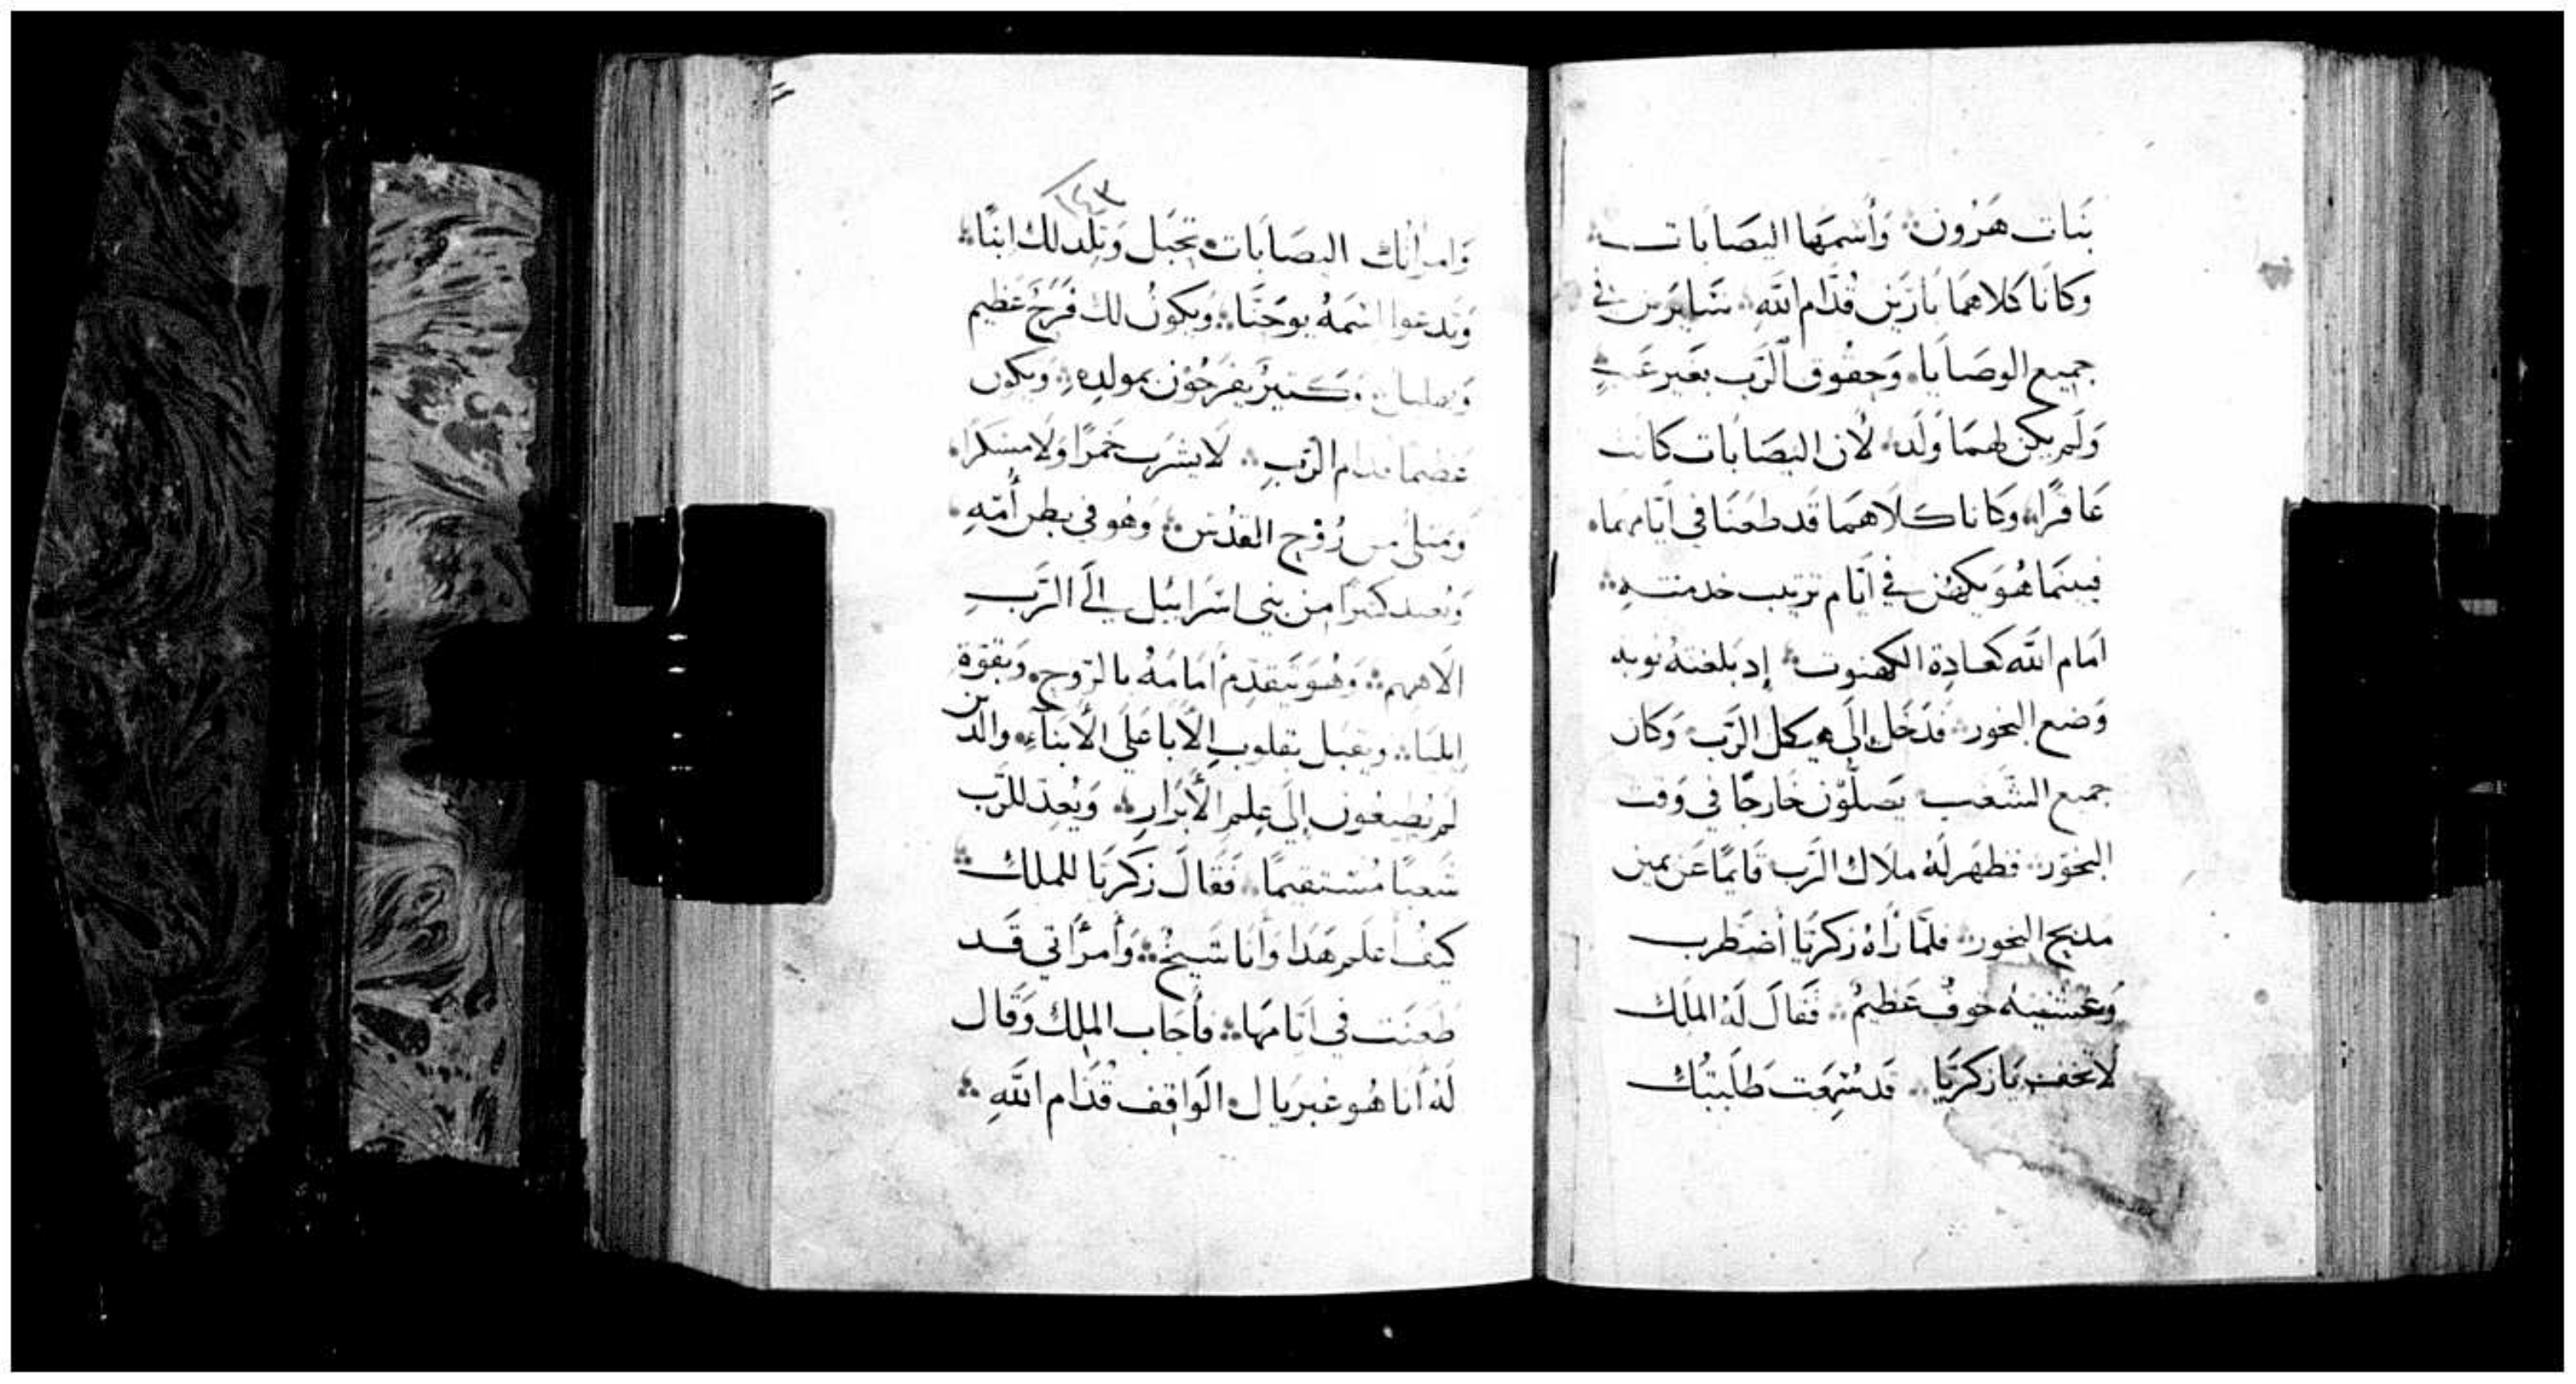 بَنات هَرُون وَأسْمَها اليصَابَات
وكانَا كلاهمَا بارَين قُدَّام اللَّهِ سَايرَين في
جميع الوصَايا وَحقوق الرَب بغَير عَيبٍ
وَلَم يكن لهمَا وَلَد لأن اليصَابَات كانت
عَاقرًا وكانا كلاهمَا قَد طعَنَا في أيَّامهمَا
فبينمَا هُوَ يكهن في أيَّام ترتيب خدمتهِ
امَام اللَّه كعادِة الكهنوت إد بلغتهُ نوبه
وَضع البخور فدَخَل إلَى هيكل الرَّب وَكان
جميع الشَعب يَصلّوُن خَارجًا في وَقت
البخوَر فظهَر لَهُ ملَاك الرَّب قَايمًا عَن يمين
مَدبح البخور فلَمَّا رَاهُ زكَريَّا أضطَرب
وَغشيهُ خوفٌ عَظيمُ فَقالَ لَهُ الملَاك
لَا تخف يَا زكرَيَا قَد سُمِعَت طَلَبتُك
١٤٣
وَامرأتك اليصَابَات تحبَل وَتلِد لك ابنًا
وَتدعوا اسْمَهُ يوحَنَّا وَيكونُ لك فَرَحٌ عَظيم
وَكثيرٌ يفرَحُون بمولدِهِ ويكون
عَضيمًا قدام الرَّبِ لَا يشرَب خَمرًا وَلَا مسكرًا
وَيمتلئ من رُوْح القدُس وَهُو في بطن أُمّهِ
وَيُعيد كثيرًا من بني اسرَاييل إلَى الرَّبِ
الَاههم وَهُوَ يَتقدّم أمَامَهُ بالرّوح وَبقوّة
ايليَا ويقبل بقلوب الأبا عَلَى الأبنَاء والدين
لم يُطيعُون إلَى عِلم الأَبرَارِ وَيُعِدّ للرَّب
شَعبًا مُستقيمًا فَقَالَ زكَريَا للملاك
كيفَ أعلم هَدَا وَأنَا شَيخُ وَأمرَأتي قَد
طَعنَت في أيَّامهَا فأجَاب الملاك وَقَال
لَهُ أنَا هُو غبريَال الوَاقِف قُدَّام اللَّهِ